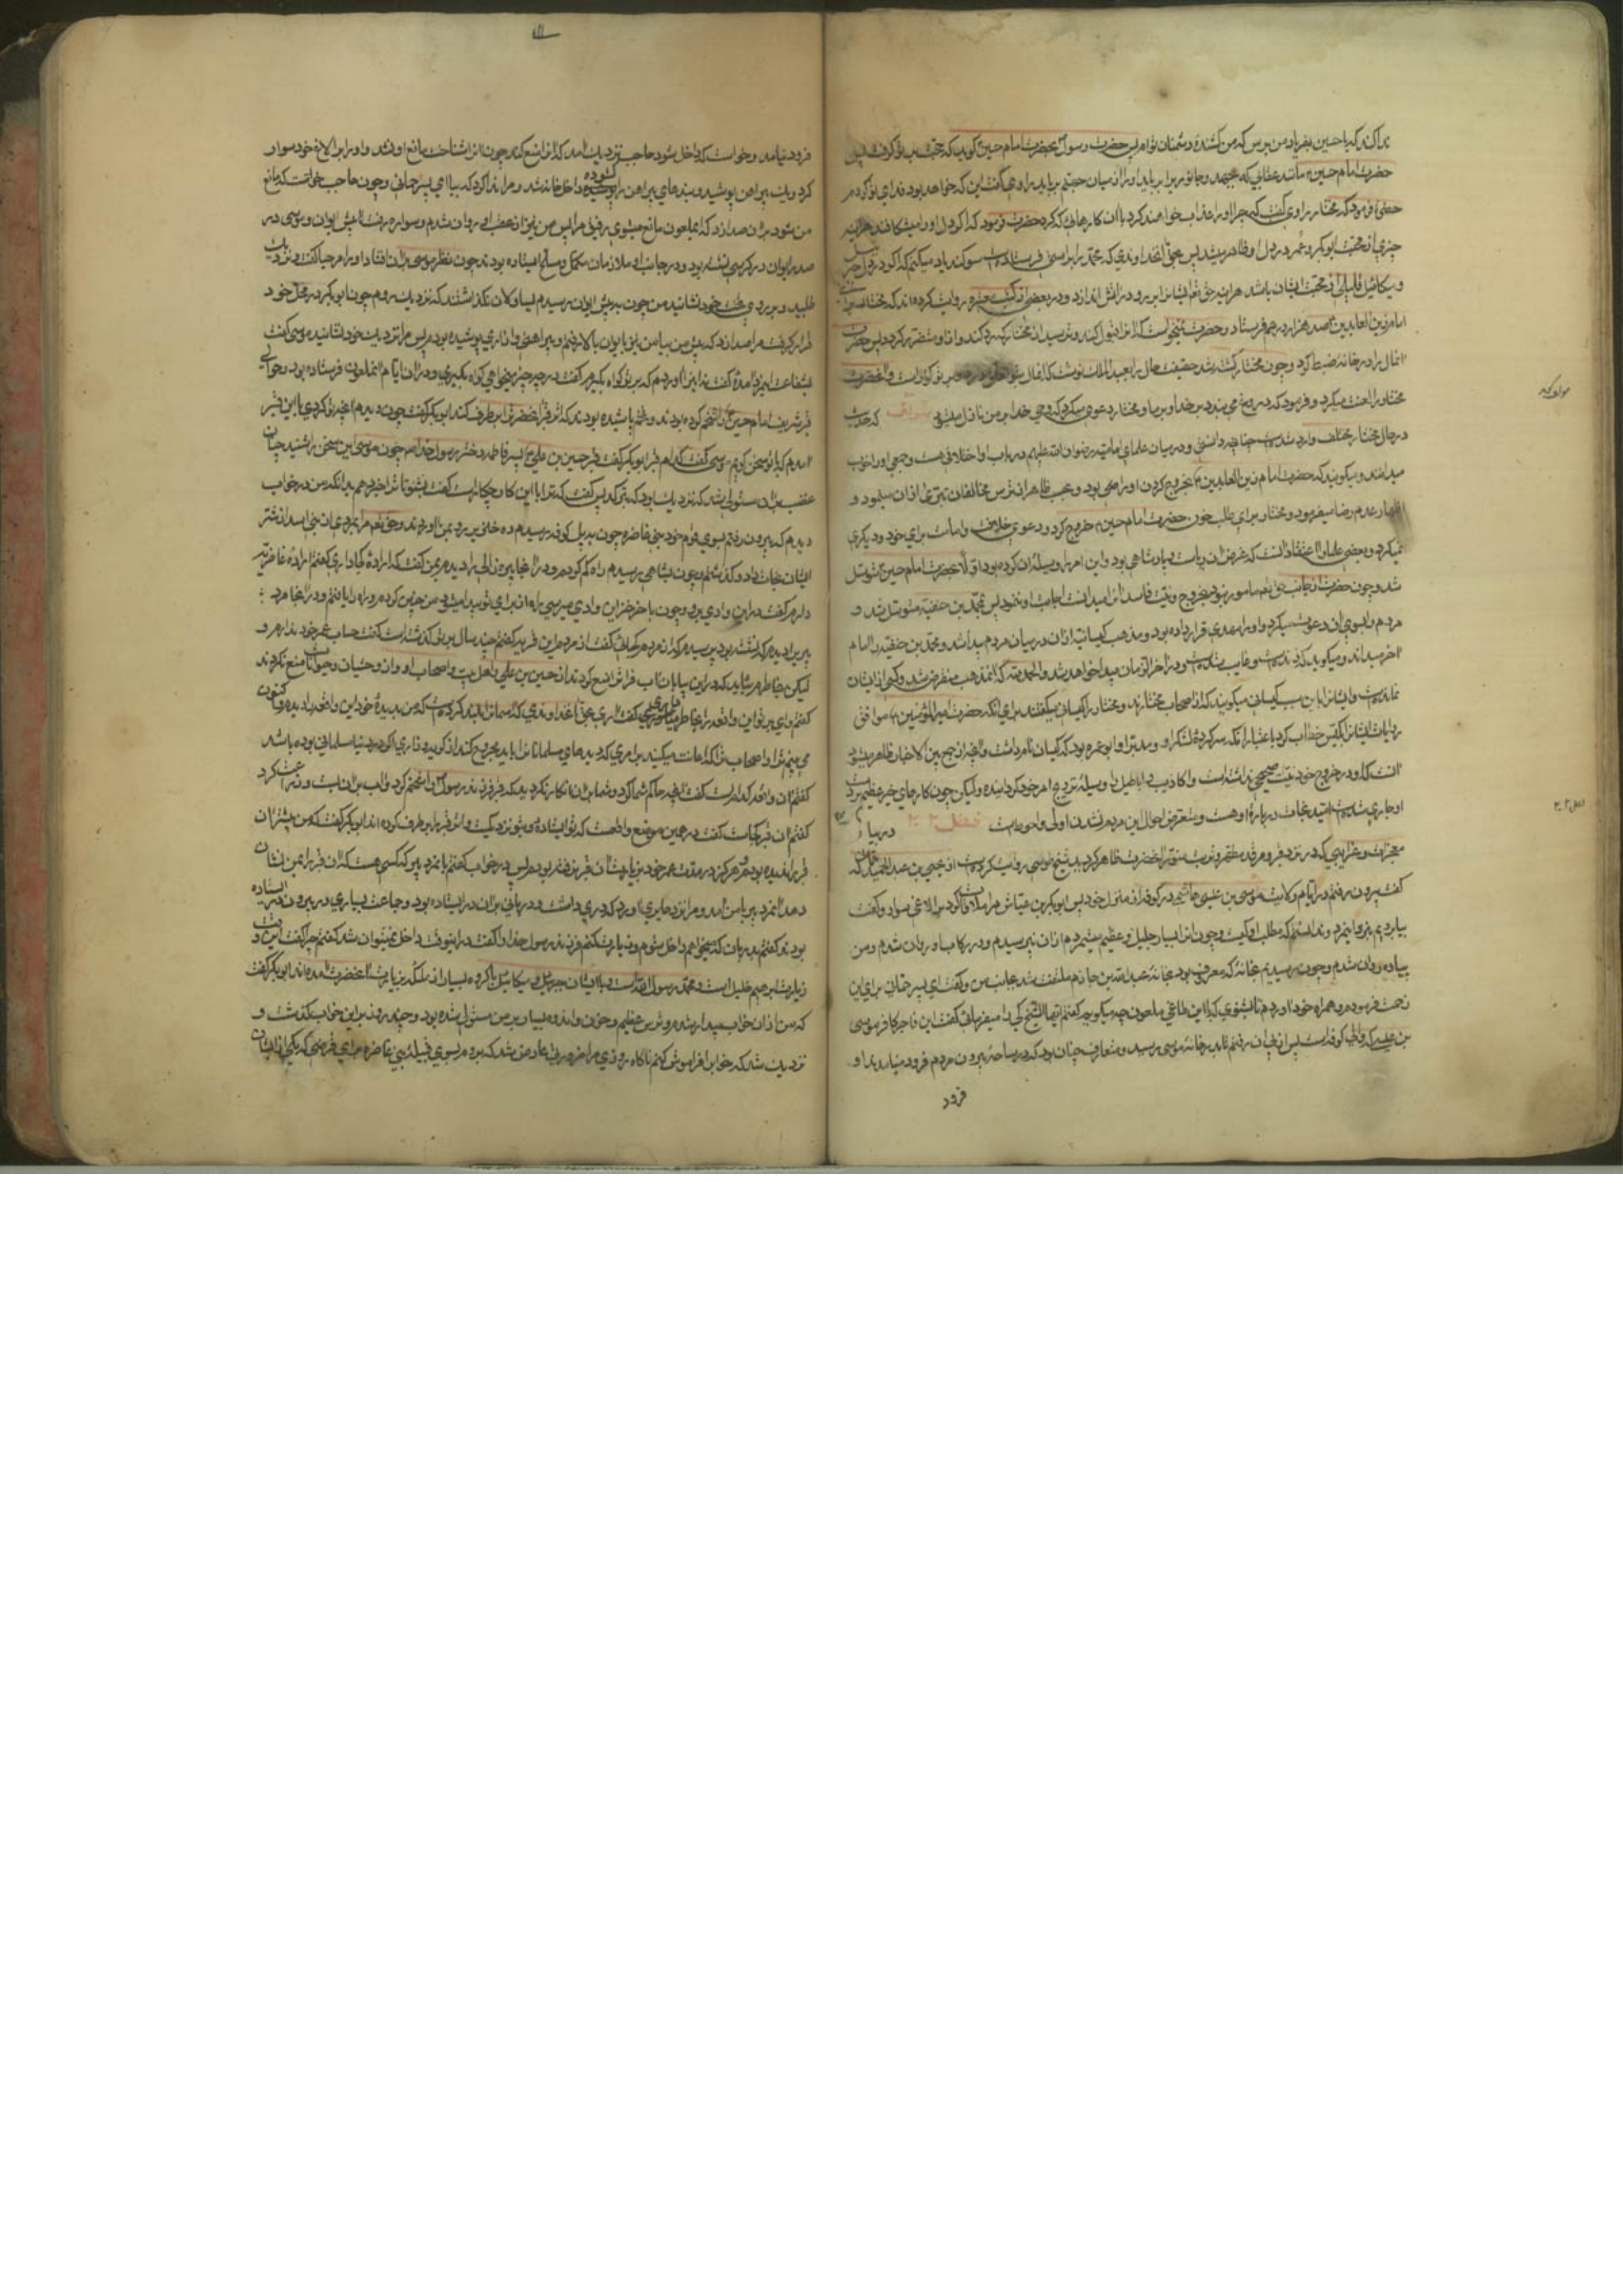 ندا کند که یا حسین بفریاد من برس که من کشندهٔ دشمنان توام پس حضرت رسول بحضرت امام حسین گوید که حجت بر تو گرفت پس
حضرت امام حسین مانند عقابی که بجهد و جانور برباید او را از میان جهنم برباید راوی گفت این که خواهد بود فدای تو گردم
حضرت فرمود که مختار راوی گفت که چرا او را عذاب خواهند کرد با آن کارها که کرد حضرت فرمود که اگر دل او را میشکافتند هرآینه
چیزی از محبت ابوبکر و عمر در دل او ظاهر میشد پس بحق آن خداوندی که محمد را براستی فرستاده است سوگند یاد میکنم که اگر در دل جبرئیل
و میکائیل محبت ایشان باشد هرآینه حق تعالی ایشان را برو در آتش اندازد و در بعضی از کتب معتبره روایت کرده‌اند که مختار برای
امام زین العابدین صد هزار درهم فرستاد و حضرت نمیخواست که آنرا قبول کند و ترسید از مختار که رد کند و از او متضرر گردد پس حضرت
آن مال را در خانه ضبط کرد و چون مختار کشته شد حقیقت حال را بعبد الملک نوشت که آن مال بتو تعلق دارد و بر تو گوارا است و آن حضرت
مختار را لعنت میکرد و فرمود که دروغ می بندد بر خدا و بر ما و مختار دعوی میکرد که وحی خدا بر من نازل میشود مؤلف گوید که احادیث
در حال مختار مختلف وارد شده است چنانچه دانستی و در میان علمای امامیه رضوان الله علیهم در باب او اختلافی هست و جمعی او را خوب
میدانند و میگویند که حضرت امام زین العابدین بخروج کردن او راضی بود و بحسب ظاهر از ترس مخالفان تبری از آن مینمود و
اظهار عدم رضا میفرمود و مختار برای طلب خون حضرت امام حسین خروج کرد و دعوی خلافت و امامت برای خود و دیگری
نمیکرد و بعضی علما را اعتقاد آنست که غرض او ریاست و پادشاهی بود و این امر را وسیله آن کرده بود و اولا بحضرت امام حسین متوسل
شد و چون حضرت از جانب حق تعالی مامور نبود بخروج و نیت فاسد او را میدانست اجابت او ننمود پس بمحمد بن حنفیه متوسل شد و
مردم را بسوی او دعوت میکرد و او را مهدی قرار داده بود و مذهب کیسانیه از او در میان مردم پیدا شد و محمد بن حنفیه را امام
آخر میدانند و میگویند که زنده است و غایب شده است و در آخر الزمان پیدا خواهد شد و الحمد لله که آن مذهب منقرض شد و کسی از ایشان
نمانده است و ایشان را باین سبب کیسانی میگویند که از اصحاب مختارند و مختار را کیسان میگفتند برای آنکه حضرت امیر المومنین موافق
روایات ایشان او را بکیس خطاب کرد یا باعتبار آنکه سرکردهٔ لشکر او و مدبر او ابو عمره بود که کیسان نام داشت و آنچه از جمع بین الاخبار ظاهر میشود
آنست که او در خروج خود نیت صحیحی نداشته است و اکاذیب و اباطیل را وسیلهٔ ترویج امر خود کردانیده ولیکن چون کارهای خیر عظیم بر دست
او جاری شده است امید نجات در بارهٔ او هست و متعرض احوال این مردم نشدن اولی و احوط است فصل ۲۰۲ در بیان
معجزات و غرایبی که در نزد قبر و مرقد مطهر و تربت منور آن حضرت ظاهر گردید شیخ طوسی روایت کرده است از یحیی بن عبد الحمید که
گفت بیرون رفتم در ایام ولایت موسی بن عیسی هاشمی در کوفه از منزل خود پس ابوبکر بن عیاش مرا ملاقات کرد بر الاغی سوار و گفت
بیا برویم بنزد این مرد و ندانستم که مطلب او کیست و چون او را بسیار جلیل و عظیم میشمردم از او نپرسیدم و در رکاب او روان شدم و من
پیاده روان شدم و چون رسیدیم بخانهٔ که معروف بود بخانهٔ عبد الله بن حازم ملتفت شد بجانب من و گفت ای پسر حمانی برای این
زحمت فرمودم و همراه خود آوردم تا بشنوی که با این طاغی ملعون چه میگویم گفتم ایها الشیخ کی را میفرمائی گفت این فاجر کافر موسی
بن عیسی که والی کوفه است پس از پی او رفتم تا بدر خانه موسی رسید و متعارف چنان بود که در ساحه بیرون مردم فرود میامدند او
فرود
فرود نیامد و خواست که داخل شود حاجب نزدیک آمد که او را منع کند چون او را شناخت مانع او نشد و او برابر الاغ خود سوار
کرد و یک پیراهن پوشیده و بندهای پیراهن را گشوده داخل خانه شد و مرا ندا کرد که بیا ای پسر حمانی و چون حاجب خواست که مانع
من شود بر او صدا زد که ای ملعون مانع میشوی رفیق مرا پس من نیز از عقب او روان شدم و سواره میرفت تا پیش ایوان و موسی در
صدر ایوان در کرسی نشسته بود و در جانب او ملازمان مکمل و مسلح ایستاده بودند چون نظر موسی بر او افتاد او را مرحبا گفت و نزدیک
طلبید و بر روی تخت خود نشانید و من چون بپیش ایوان رسیدم یساولان نگذاشتند که نزدیک روم چون ابوبکر در محل خود
قرار گرفت مرا صدا زد که پیش من بیا من نیز بایوان بالا رفتم و پیراهنی و ازاری پوشیده بودم پس مرا نزدیک خود نشانید موسی گفت
بشفاعت این مرد آمدهٔ گفت نه او را آوردم که بر تو گواه بگیرم گفت در چه چیز میخواهی گواه بگیری و در آن ایام آن ملعون فرستاده بود و حوالی
قبر شریف امام حسین را شخم کرده بودند و تخم پاشیده بودند که اثر قبر آن حضرت را برطرف کنند ابوبکر گفت چون دیدم آنچه تو کردی با این قبر
آمدم که با تو سخن گویم موسی گفت کدام قبر ابوبکر گفت قبر حسین بن علی پسر فاطمه دختر رسول خدا چون موسی این سخن را شنید چنان
غضب بر او مستولی شد که نزدیک بود که بترکد پس گفت که ترا با این کار چکار است گفت بشنو تا ترا خبر دهم بدانکه من در خواب
دیدم که بیرون رفتم بسوی قوم خود بنی غاضره چون بپل کوفه رسیدم ده خوک بر من رو آوردند و حق تعالی مرا بمردی از بنی اسد از شر
ایشان نجات داد و گذشتم چون بشاهی رسیدم راه گم کردم و در آنجا پیره زالی را دیدم بمن گفت که ارادهٔ کجا داری گفتم ارادهٔ غاضریه
دارم گفت در این وادی برو و چون بآخر این وادی میرسی راه از برای تو پیدا میشود من چنین کردم و راه را یافتم و در آنجا مرد
پیری را دیدم که نشسته بود پرسیدم که از مردم کجائی گفت از مردم این قریه گفتم چند سال بر تو گذشته است گفت حساب عمر خود ندارم و
لیکن بخاطرم میآید که در این بیابان آب فرات را منع کردند از حسین بن علی و اهل بیت و اصحاب او و از وحشیان و حیوانات منع نکردند
گفتم وای بر تو این واقعه را بخاطر داری گفت آری بحق آن خداوندی که آسمان را بلند کرده است که من بدیدهٔ خود این واقعه را دیدم و اکنون
می بینم ترا و اصحاب ترا که اعانت میکنید بر امری که دیدهای مسلمانان را باید مجروح کند از گریه و زاری اگر در دنیا مسلمانی بوده باشد
گفتم آن واقعه کدام است گفت آنچه حاکم شما کرد و شما بر او انکار نکردید که قبر فرزند رسول را شخم کرد و آب بر آن بست و زراعت کرد
گفتم آن قبر کجاست گفت در همین موضع و آنجاست که تو ایستادهٔ و بتو نزدیکست و اثر قبر را برطرف کرده اند ابوبکر گفت که من پیشتر آن
قبر را ندیده بودم و هرگز در مدت عمر خود بزیارت آن قبر نرفته بودم پس در خواب گفتم بآن مرد پیر که کسی هست که آن قبر را بمن نشان
دهد آن مرد پیر با من آمد و مرا نزد حایری آورد که دری داشت و دربانی بر آن در ایستاده بود و جماعت بسیاری در بیرون در ایستاده
بودند گفتم بدربان که میخواهم داخل شوم و زیارت کنم فرزند رسول خدا را گفت در این وقت داخل نمیتوان شد گفتم چرا گفت این وقت
زیارت ابراهیم خلیل است و محمد رسول الله است و با ایشان جبرئیل و میکائیل با گروه بسیار از ملائکه بزیارت آن حضرت آمده اند ابوبکر گفت
که من از آن خواب بیدار شدم و ترس عظیم و حزن و اندوه بسیار بر من مستولی شده بود و چند روز بر این خواب گذشت و
نزدیک شد که خواب را فراموش کنم ناگاه روزی مرا ضرورتی عارض شد که بروم بسوی قبیلهٔ بنی غاضره برای قرضی که یکی از ایشان